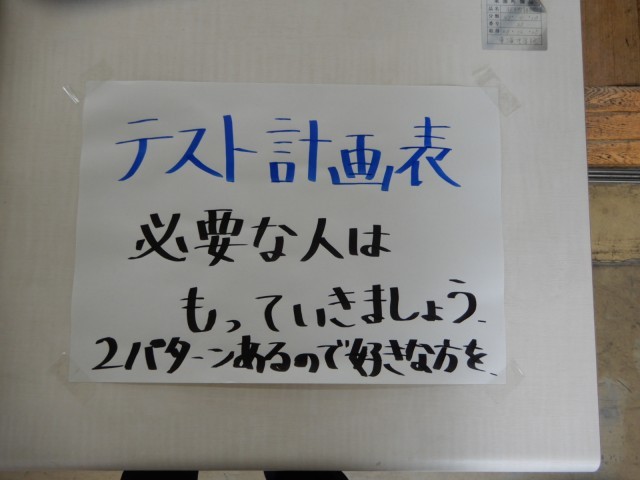 テスト計画表
必要な人は
もっていきましょう、
2パターンあるので好きな方を、